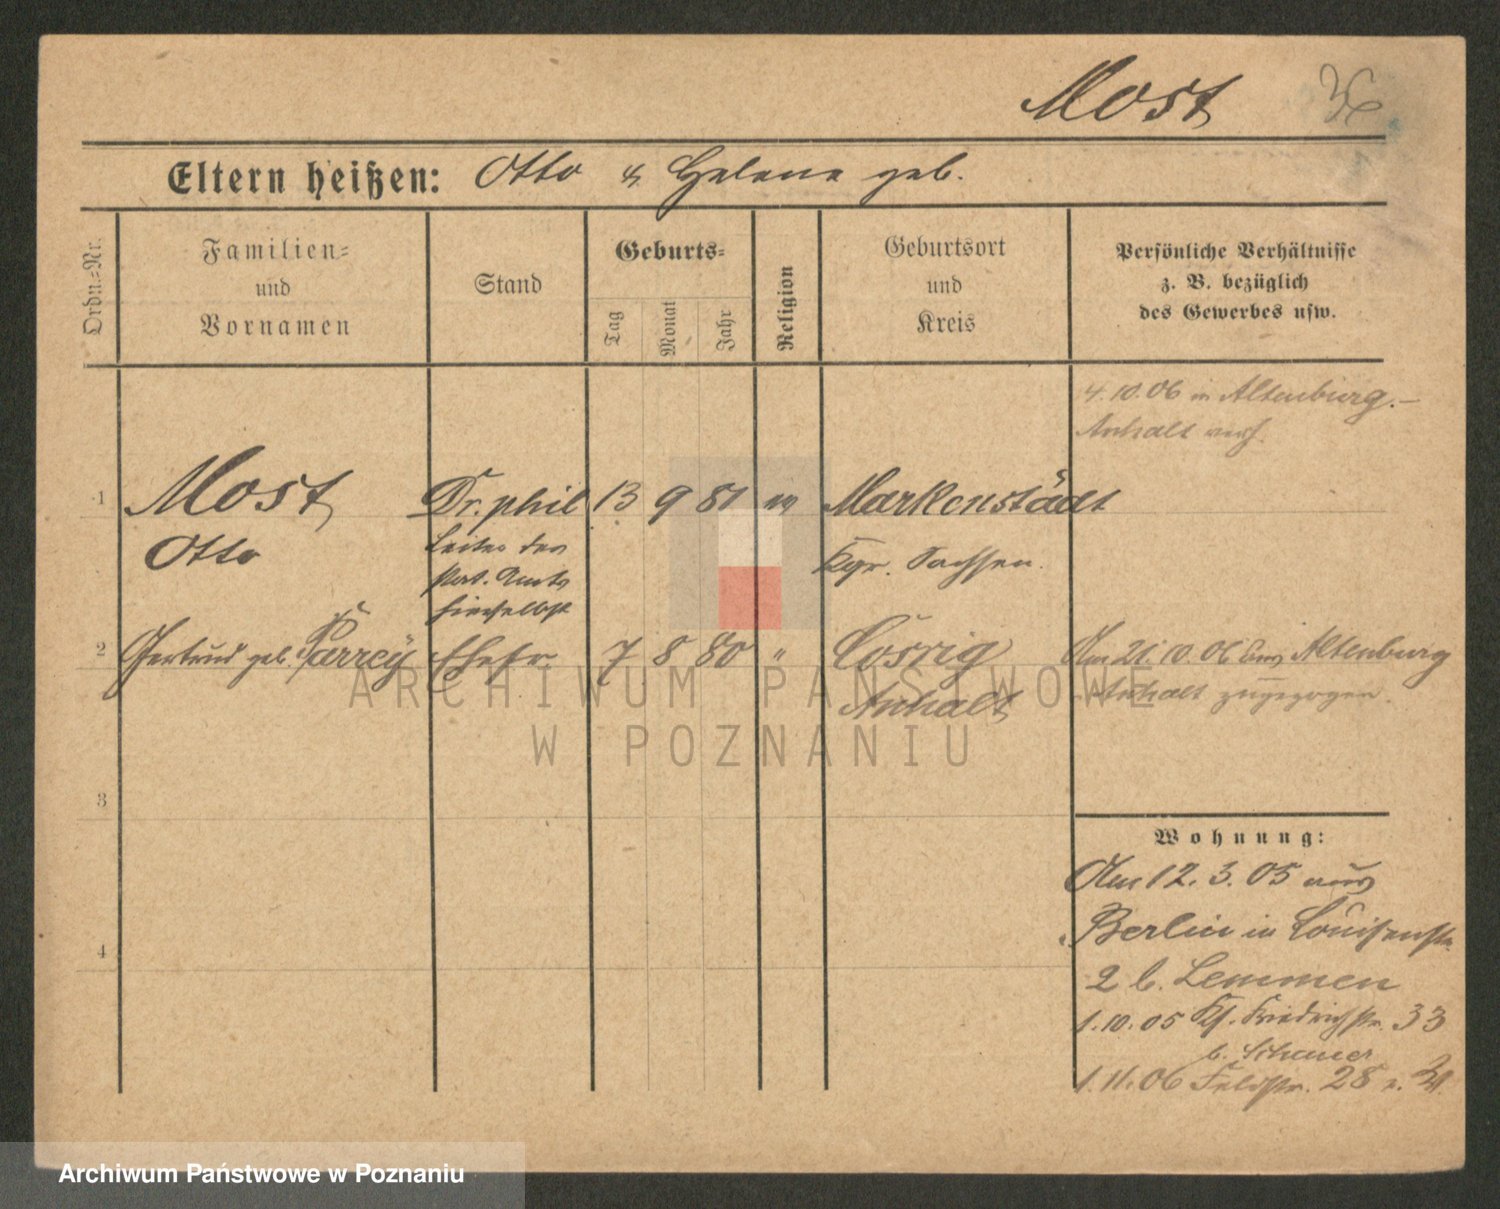 Most
Eltern heißen: Otto & Helene geb.
Ordn.-Nr.
Familien-
und
Vornamen
Stand
Geburts-
Tag
Monat
Jahr
Religion
Geburtsort
und
Kreis
Persönliche Verhältnisse
z. B. bezüglich
des Gewerbes usw.
4.10.06 in Altenburg.-
Anhalt verh.
1 Most Dr. phil 13 9 81 Markenstädt
Otto
Leiter des
Stat. Amts
hierselbst
Kgr. Sachsen.
2 Gertrud geb. Parrey Ehefr. 7 8 80 " Cösrig
Anhalt
Am 21.10.06 aus Altenburg
Anhalt zugezogen.
3
4
Wohnung:
Am 12.3.05 aus
Berlin in Louisenstr.
2 b. Lemmen
1.10.05 Kl. Friedrichstr. 33
b. Schauer
1.11.06 Feldstr. 28
ARCHIWUM PAŃSTWOWE
W POZNANIU
Archiwum Państwowe w Poznaniu